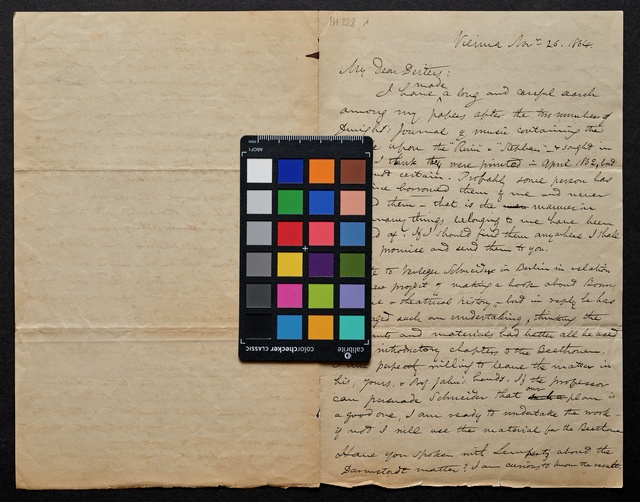 Vienna Nov. 26. 1864.
My Dear Deiters:
made
I have a long and careful search
among my papers after the two numbers of
Dwight's Journal of music containing the
upon the "Ruin" & "Stephan" - & sought in
I think they were printed - April 1862, but
not certain. Probably some person has
borrowed them of me and never
them - that is the manner in
many things belonging to me have been
of. If I should find them anywhere I shall
promise and send them to you.
to Verleger Schneider in Berlin in relation
project of making a book about Bonn
theatrical history - but in reply he has
such an undertaking, thinking the
and materials had better all be used
introductory chapters to the Beethoven.
perfectly willing to leave the matter in
his, yours, & Prof Jahn's hands. If the professor
our
can persuade Schneider that plan is
a good one, I am ready to undertake the work -
if not I will use the material for the Beethoven
Have you spoken with about the
Darmstadt matter? I am curious to know the result.
calibrite
colorchecker CLASSIC